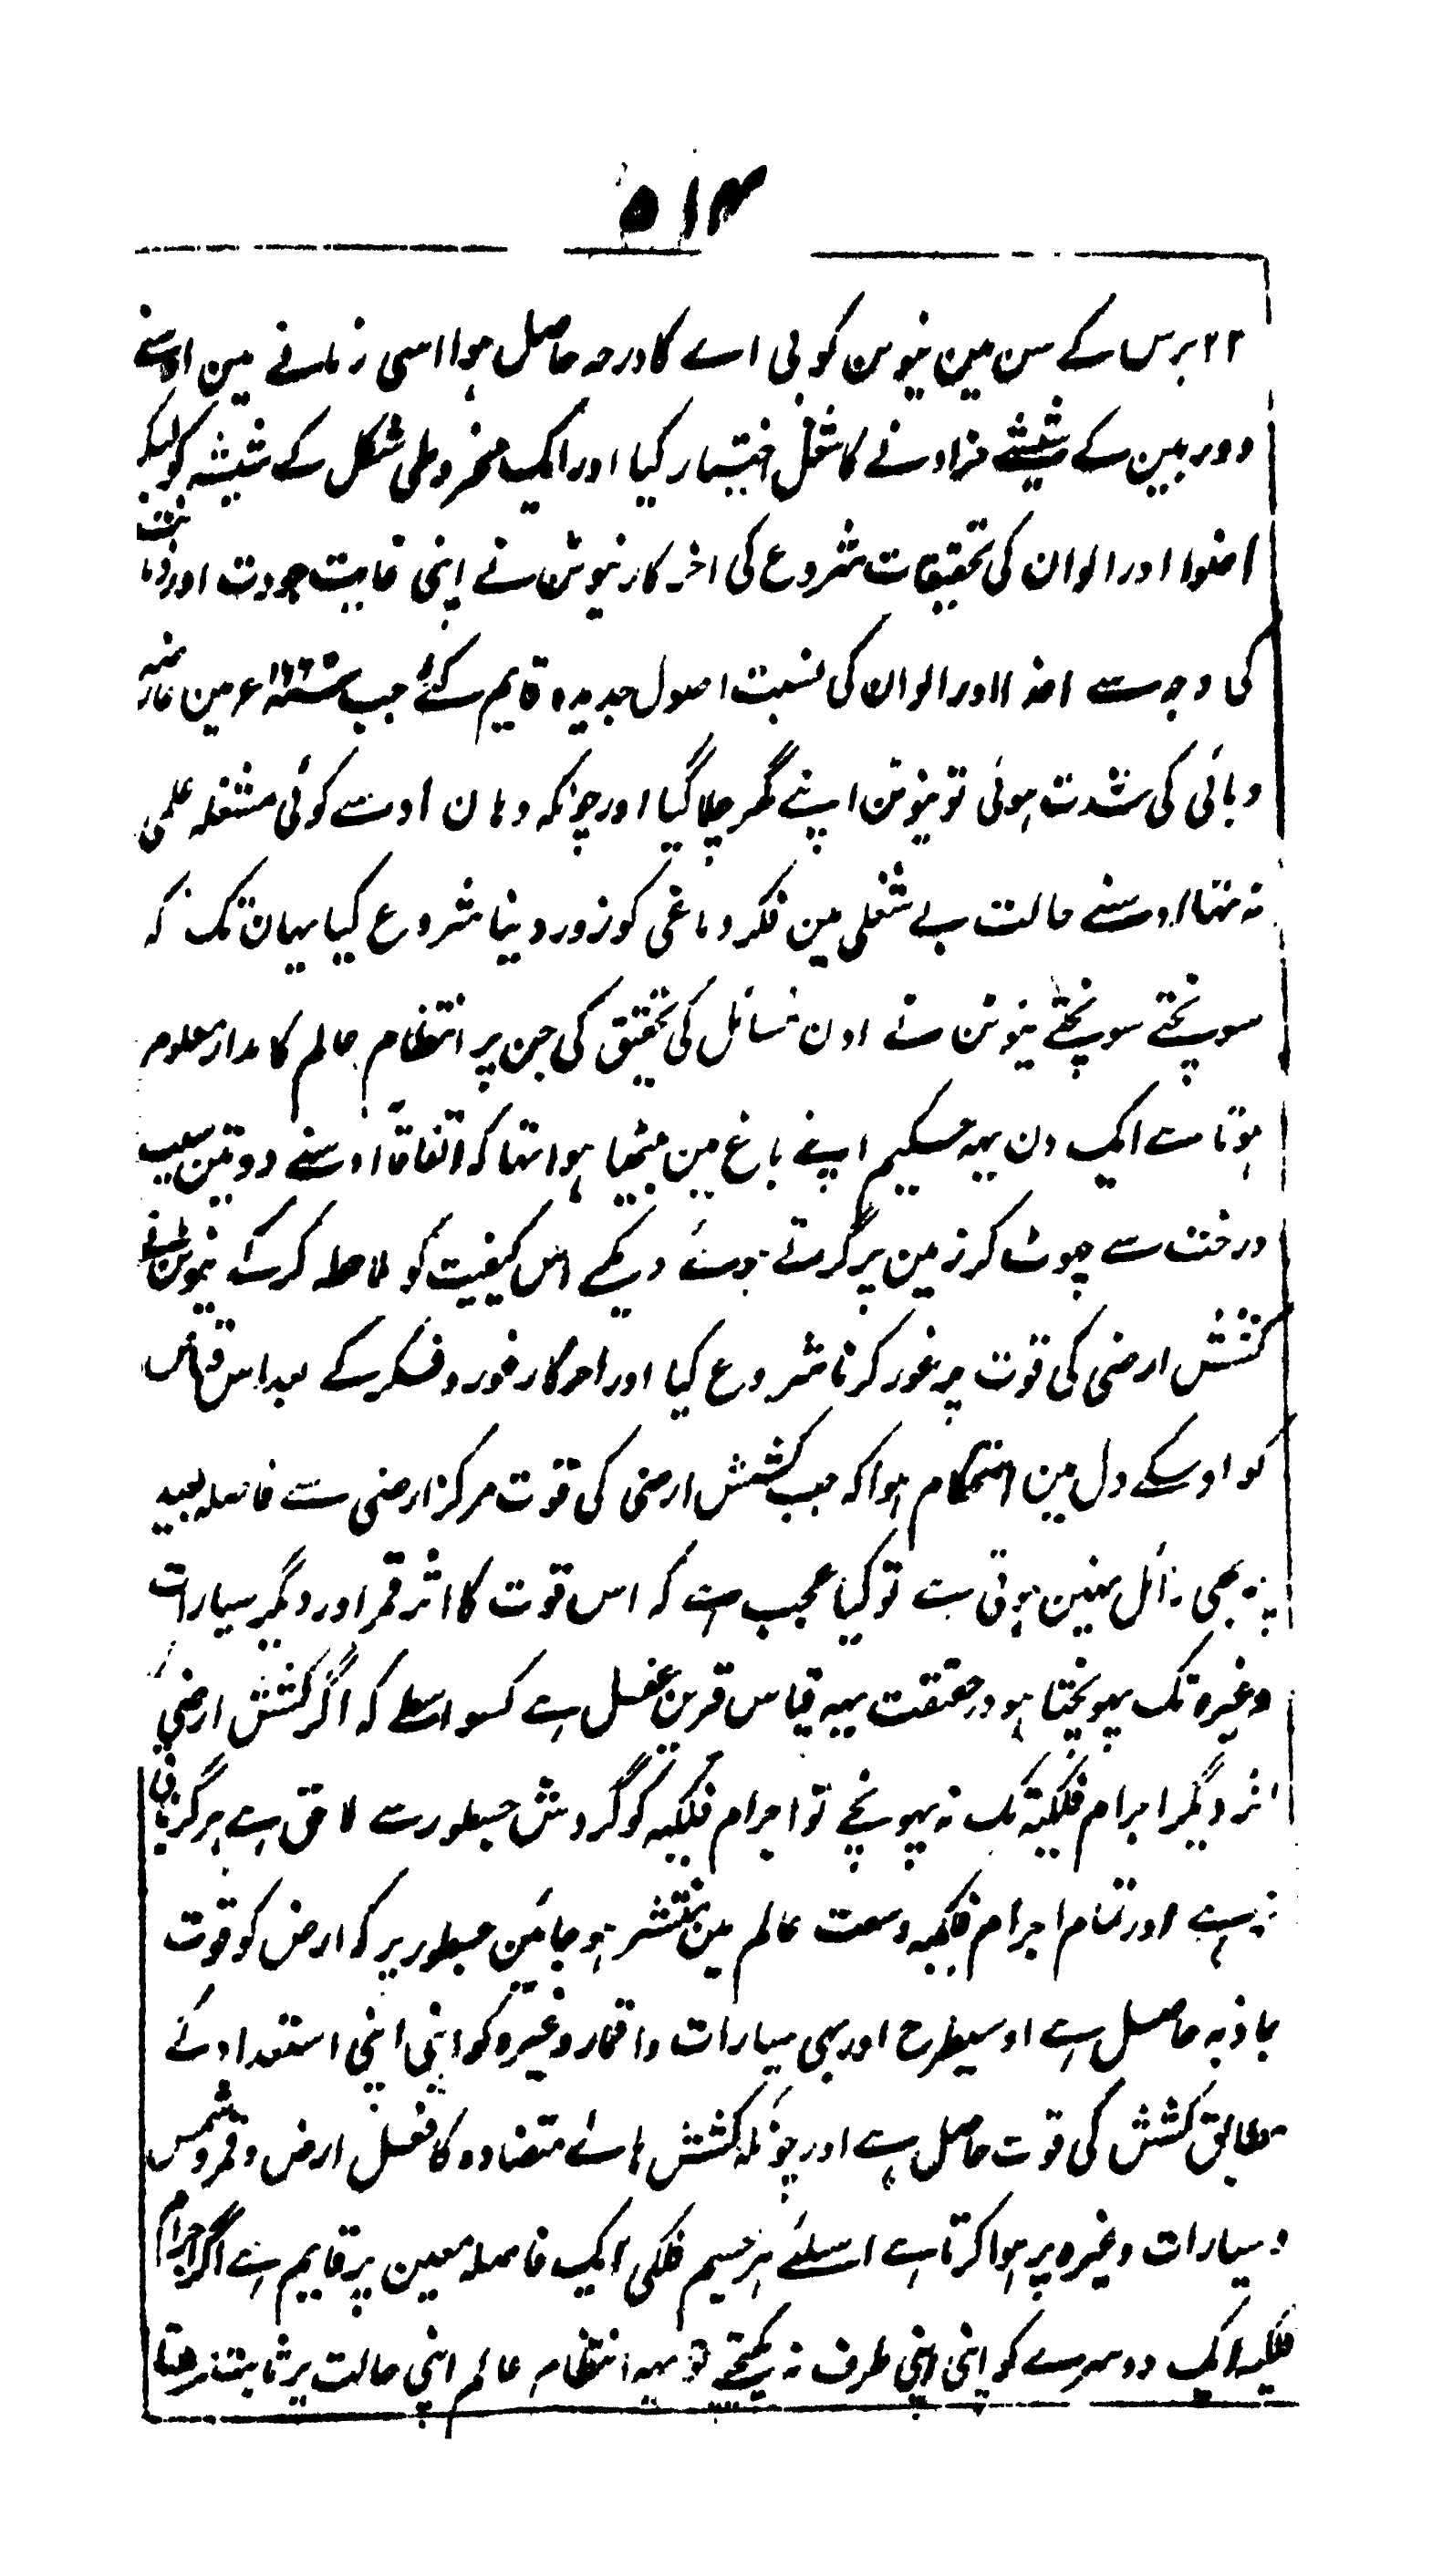 ۵۱۴
۲۲ برس کے سن مین نیوٹن کو بی اے کا درجہ حاصل ہوا اسی زمانے مین اوسنے
دوربین کے شیشے خرادنے کا شغل اختیار کیا اور ایک مخروطی شکل کے شیشہ کو لیکر
اضوا اور الوان کی تحقیقات شروع کی اخر کار نیوٹن نے اپنی غایت جودت اور ذہانت
کی وجہ سے اضوا اور الوان کی نسبت اصول جدیدہ قایم کئے جب ۱۶۶۵ء مین عارضہ
وبائی کی شدت ہوئی تو نیوٹن اپنے گھر چلا گیا اور چونکہ وہان اوسے کوئی مشغلہ علمی
نہ تھا اوسنے حالت بے شغلی مین فکر دماغی کو زور دینا شروع کیا یہان تک کہ
سونچتے سونچتے نیوٹن نے اون مسائل کی تحقیق کی جن پر انتظام عالم کا مدار معلوم
ہوتا ہے ایک دن یہہ حکیم اپنے باغ مین بیٹھا ہوا تھا کہ اتفاقاً اوسنے دو تین سیب
درخت سے چھوٹ کر زمین پر گرتے ہوئے دیکھے اس کیفیت کو ملاحظہ کرکے نیوٹن نے
کشش ارضی کی قوت پر غور کرنا شروع کیا اور اخر کار غور و فکر کے بعد اس قیاس
کو اوسکے دل مین استحکام ہوا کہ جب کشش ارضی کی قوت مرکز ارضی سے فاصلہ بعید
پر بھی زائل نہین ہوتی ہے تو کیا عجب ہے کہ اس قوت کا اثر قمر اور دیگر سیارات
وغیرہ تک پہونچتا ہو درحقیقت یہہ قیاس قرین عقل ہے کسواسطے کہ اگر کشش ارضی کا
اثر دیگر اجرام فلکیہ تک نہ پہونچے تو اجرام فلکیہ کو گردش جسطور سے لاحق ہے ہرگز باقی
نہ رہے اور تمام اجرام فلکیہ وسعت عالم مین منتشر ہو جائین جسطور پر کہ ارض کو قوت
جاذبہ حاصل ہے اوسیطرح اور بھی سیارات و اقمار وغیرہ کو اپنی اپنی استعداد کے
مطابق کشش کی قوت حاصل ہے اور چونکہ کشش ہائے متضادہ کا فعل ارض و قمر و شمس
و سیارات وغیرہ پر ہوا کرتا ہے اسلئے ہر جسم فلکی ایک فاصلہ معین پر قایم ہے اگر اجرام
فلکیہ ایک دوسرے کو اپنی اپنی طرف نہ کھینچتے تو یہہ انتظام عالم اپنی حالت پر ثابت نہ رہتا